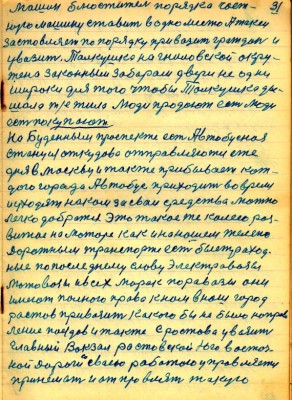 31
машин блюстител порядка част-
ную машину ставит в одно место А такси
заставляет по порядку привозит граждан и
увозит. Толкушка на гниловской окру-
жена законным забарам двери не одни
широки для того чтобы Толкушка ды-
шала тиснила Люди продают ест Люди
ест покупают
На Буденным проспекте ест Автобусная
станция откудова отправляются еже
дня в Москву и также прибывает каж-
дого города Автобус приходит во время
уходят на своем средства можно
легко добратся Это такое же колесо раз-
витое на Моторе как и на нашем железно
Дорожным транспорте ест быстраход-
ные по последнему слову Электравозы
Мотовозы и всех марак паравозы они
имеют полного права к ном в ном город
растов привозит какого бы не было направ
ление поездов и также с ростова увозит
главный Вокзал растовской Юго восточ-
ной Дороги свою работою управляет
принемает и отправляет такую